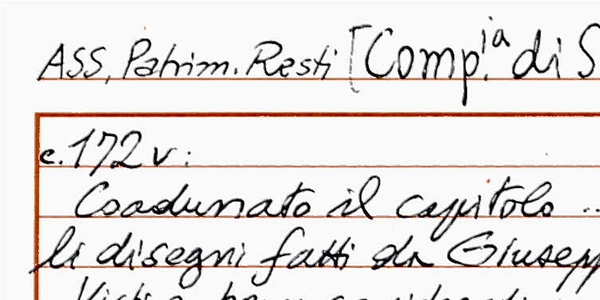 ASS, Patrim. Resti [Comp.ia di S
c. 172 v:
Coadunato il capitolo ..
li disegni fatti da Giusepp